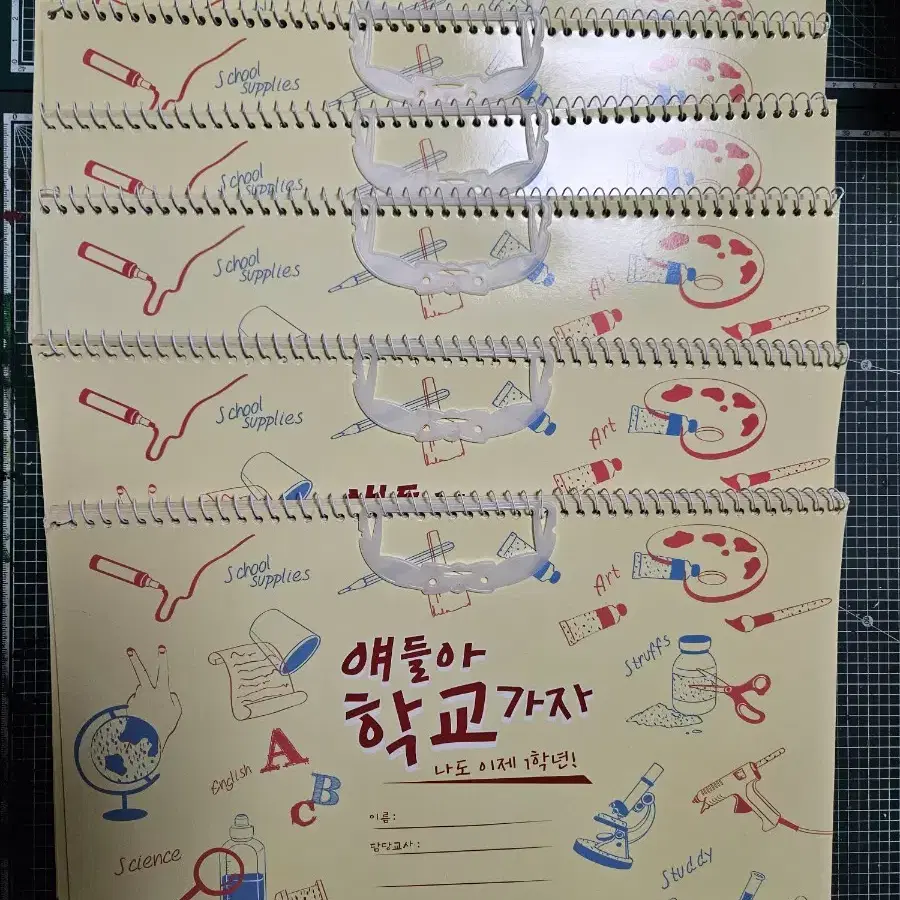 School
supplies
School
supplies
School
supplies
Art
School
supplies
Art
School
supplies
Art
얘들아
학교가자
나도 이제 1학년!
Struffs
English
A
B
C
이름 :
담당교사 :
Science
Studdy